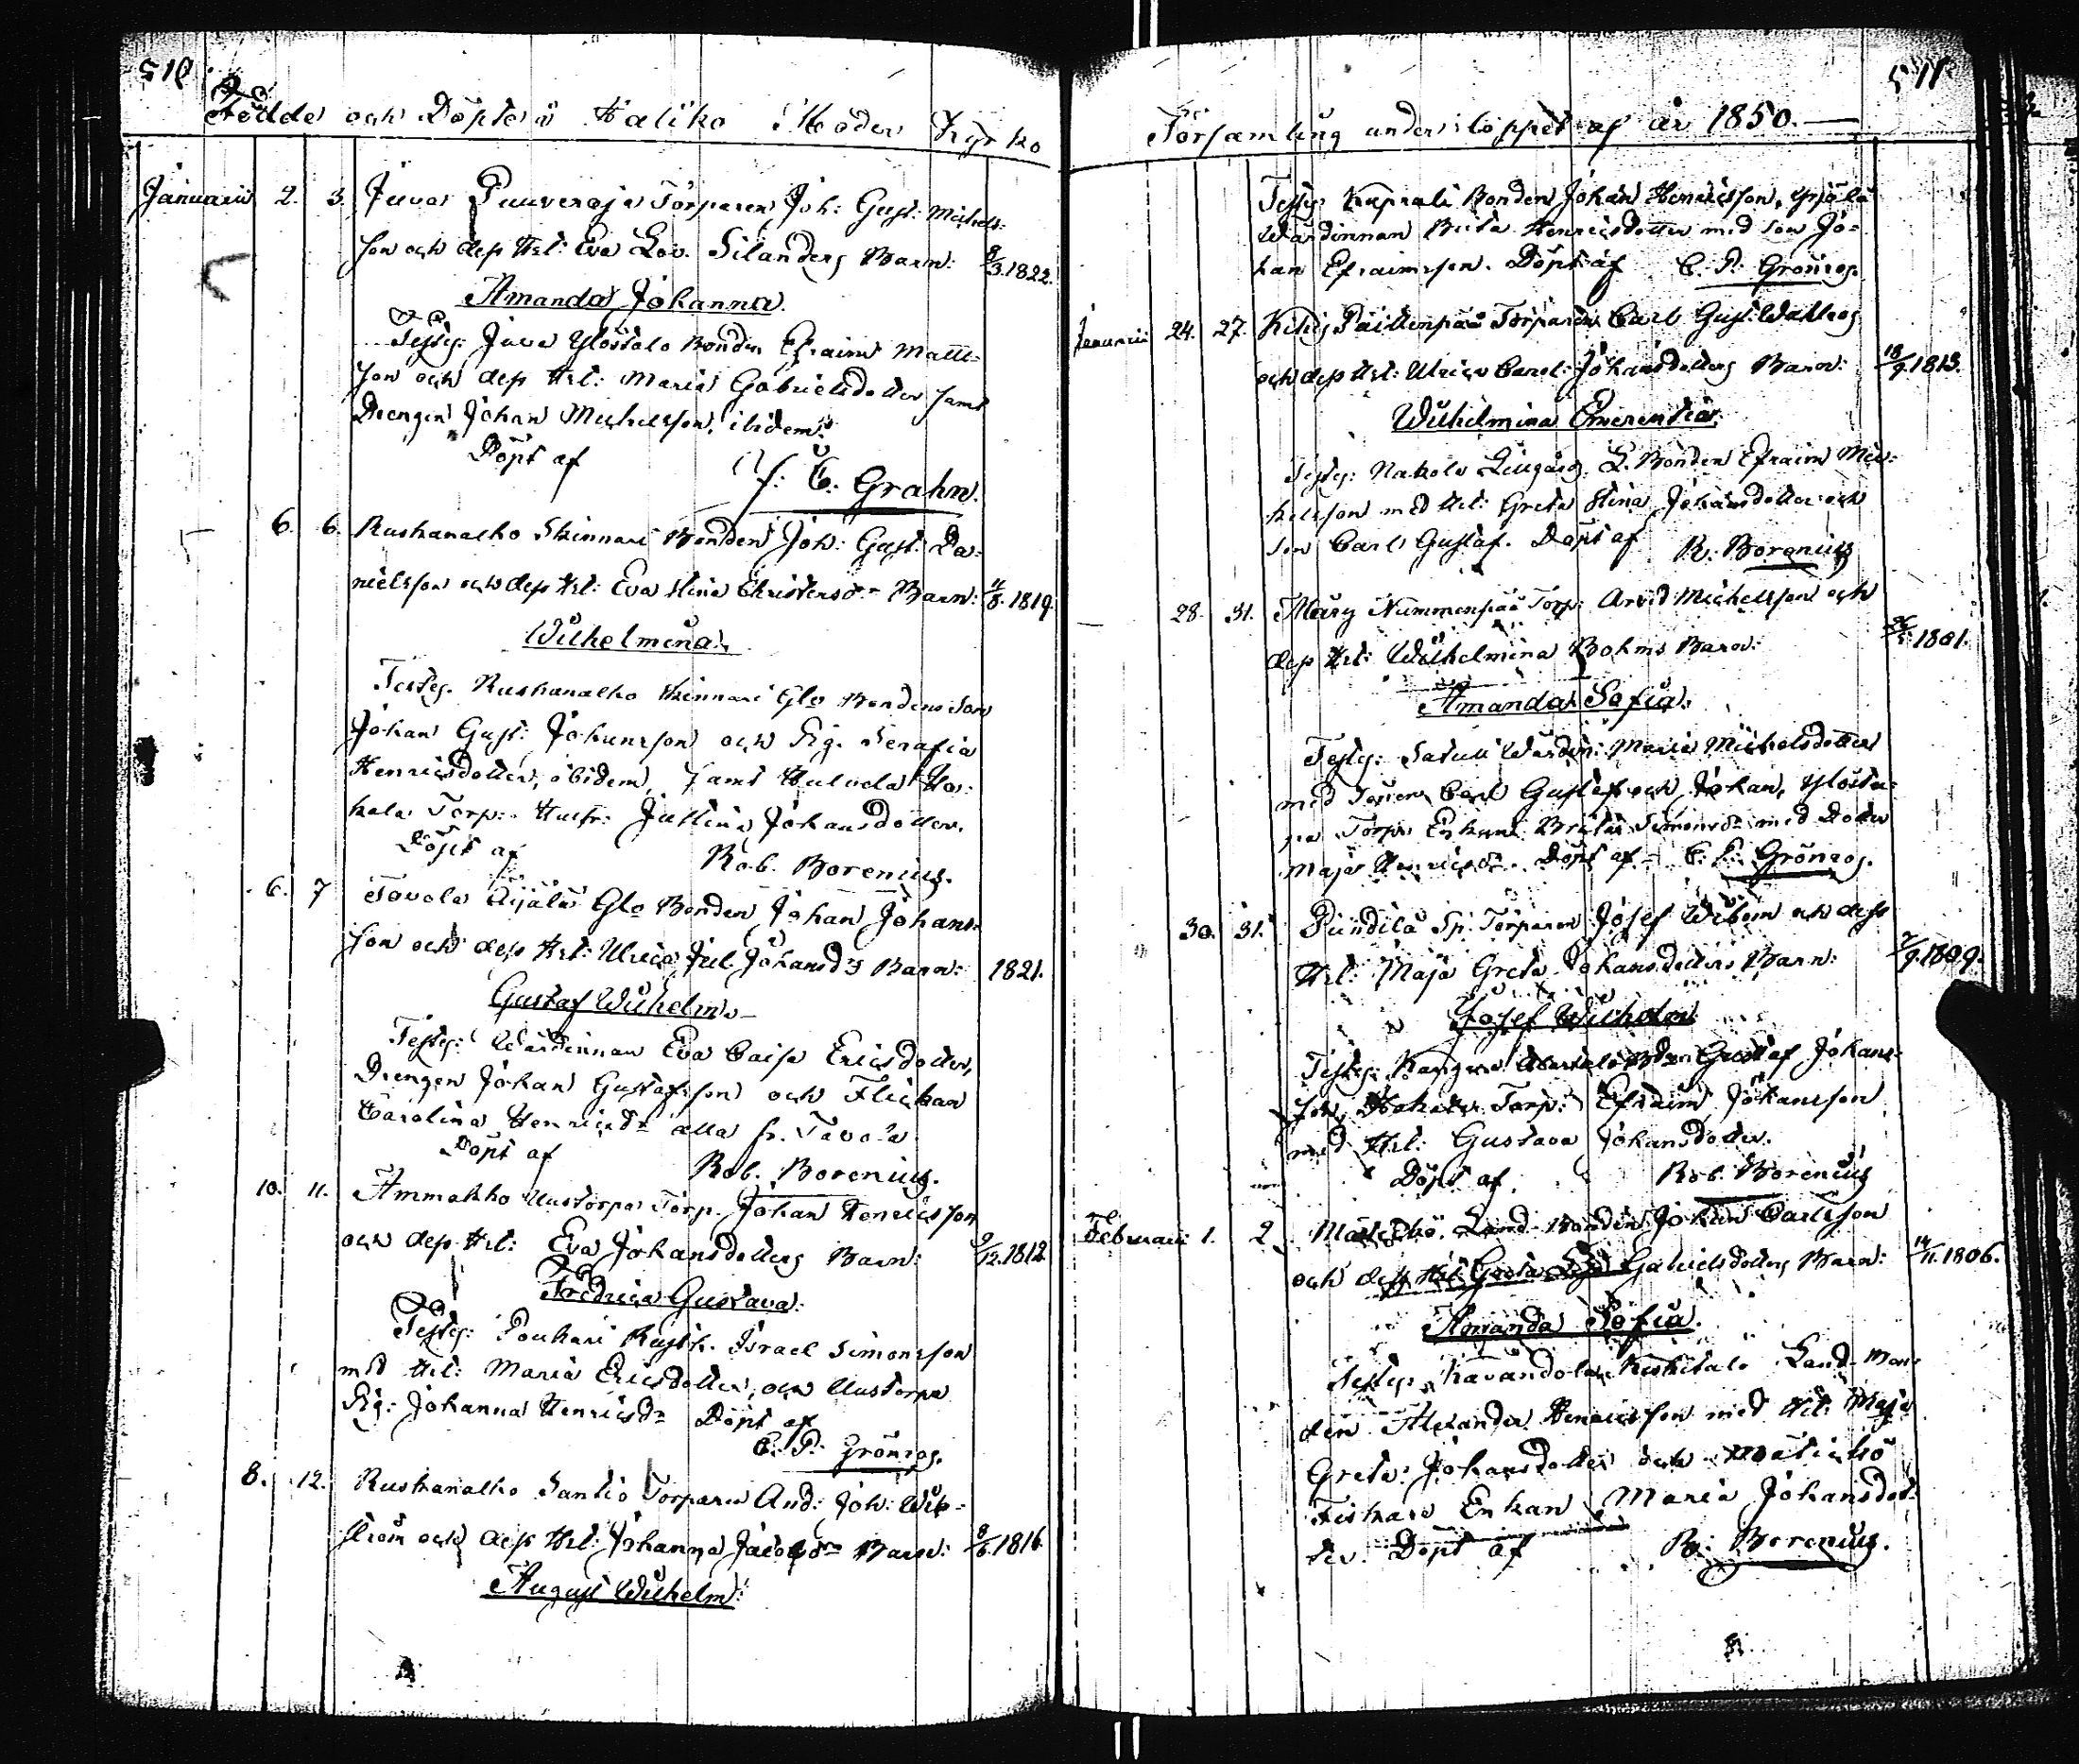 510.
Födde och Döpte i Haliko Moder Kyrko
Januarii 2. 3. Juva Puuveraja Torparen Joh: Gust: Michels-
son och dess Hst: Eva Lov. Silanders Barn: 8/3.1822.
Amanda Johanna.
Testes: Juva Ylöstalo Bonden Efraim Matts-
son och dess Hst: Maria Gabrielsdotter samt
Drengen Johan Michelsson, ibidem.
Döpt af
C. Grahn.
6. 6. Ruskanalho Skinnari Bonden Joh: Gust: Da-
nielsson och dess Hst: Eva Stina Christersdr Barn: 1819.
Wilhelmina.
Testes. Ruskanalho Skinnari Gla Bondens Son
Johan Gust: Johansson och Pig. Serafia
Henricsdotter, ibidem, samt
Torp: Hustr: Justina Johansdotter.
Döpt af
Rob. Borenius.
6. 7 Tavola Äijälä Gla Bonden Johan Johans-
son och dess Hst: Ulrica Jul. Johansds Barn: 1821.
Gustaf Wilhelm.
Testes: Wärdinnan Eva Caisa Ericsdotter,
Drengen Johan Gustafsson och Flickan
Carolina Henricsdr alla fr. Tavola
Döpt af
Rob. Borenius.
10. 11. Ammakko Uustorpa Torp. Johan Henricsson
och dess Hst: Eva Johansdotters Barn: 9/12.1812
Fredrica Gustava.
Testes: Poukari Rusth. Israel Simonsson
med Hst: Maria Ericsdotter, och Uustorpa
Pig: Johanna Henricsdr Döpt af
C. P. Grönroos.
8. 12. Ruskanalho Santio Torparen And: Joh: Wik-
ström och dess Hst: Johanna Jacobsdr Barn: 8/6.1816.
August Wilhelm.
511
Församling under loppet af år 1850.
Testes Kaprali Bonden Johan Henricsson, Yrjälä
Wärdinnan Brita Henricsdotter med son Jo-
han Efraimsson. Döpt af C. P. Grönroos.
Januarii 24. 27. Päitenpää Torparen Carl Gust: Wallroos
och dess Hst: Ulrica Carol: Johansdotters Barn: 18/9.1813.
Wilhelmina Emerentia.
Testes: Nakola L. Bonden Efraim Mic-
kelsson med Hst: Greta Stina Johansdotter och
son Carl Gustaf. Döpt af R. Borenius
28. 31. Nummenpää Torp: Arvid Michelsson och
dess Hst: Wilhelmina Bohms Barn: 1801.
Amanda Sofia.
Testes: Wärdin: Maria Michelsdotter
med Söner Carl Gustaf och Johan,
Torp: Enkan Brita Simonsdr med Dotter
Maja Henricsdr. Döpt af C. P. Grönroos.
30. 31. Pundila Sp. Torparen Josef Wibom och dess
Hst: Maja Greta Johansdotters Barn: 7/9.1809.
Josef Wilhelm
Testes: Gustaf Johans-
son, Torp: Efraim Johansson
med Hst: Gustava Johansdotter.
Döpt af Rob. Borenius
Februarii 1. 2. Land Bonden Johan Carlsson
och dess Hst: Greta Lisa Gabrielsdotters Barn: 14/11.1806.
Amanda Sofia.
Testes: Kavandola Land-Bon-
den Alexander Henricsson med Hst: Maja
Greta Johansdotter och
Enkan Maria Johansdot-
ter. Döpt af R: Borenius.